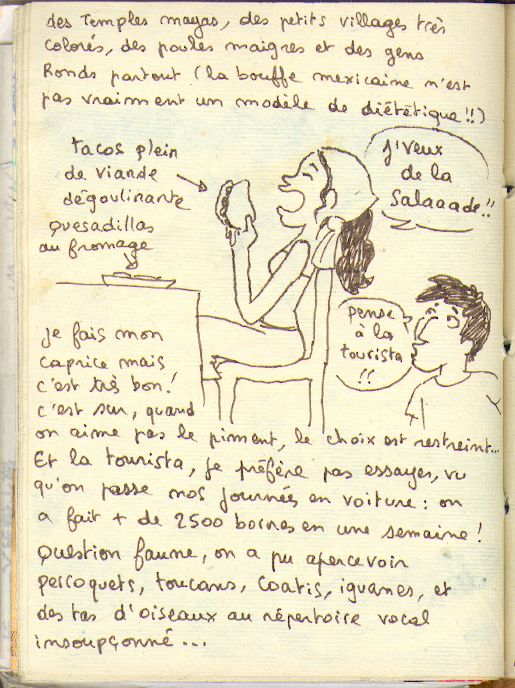 des Temples mayas, des petits villages très
colorés, des poules maigres et des gens
Ronds partout (la bouffe mexicaine n'est
pas vraiment un modèle de diététique!!)
tacos plein
de viande
dégoulinante
quesadillas
au fromage
J'veux
de la
Salaaade!!
pense
à la
tourista
!!
je fais mon
caprice mais
c'est très bon!
c'est sur, quand
on aime pas le piment, le choix est restreint...
Et la tourista, je préfère pas essayer, vu
qu'on passe nos journées en voiture : on
a fait + de 2500 bornes en une semaine!
Question faune, on a pu apercevoir
perroquets, toucans, coatis, iguanes, et
des tas d'oiseaux au répertoire vocal
insoupçonné...